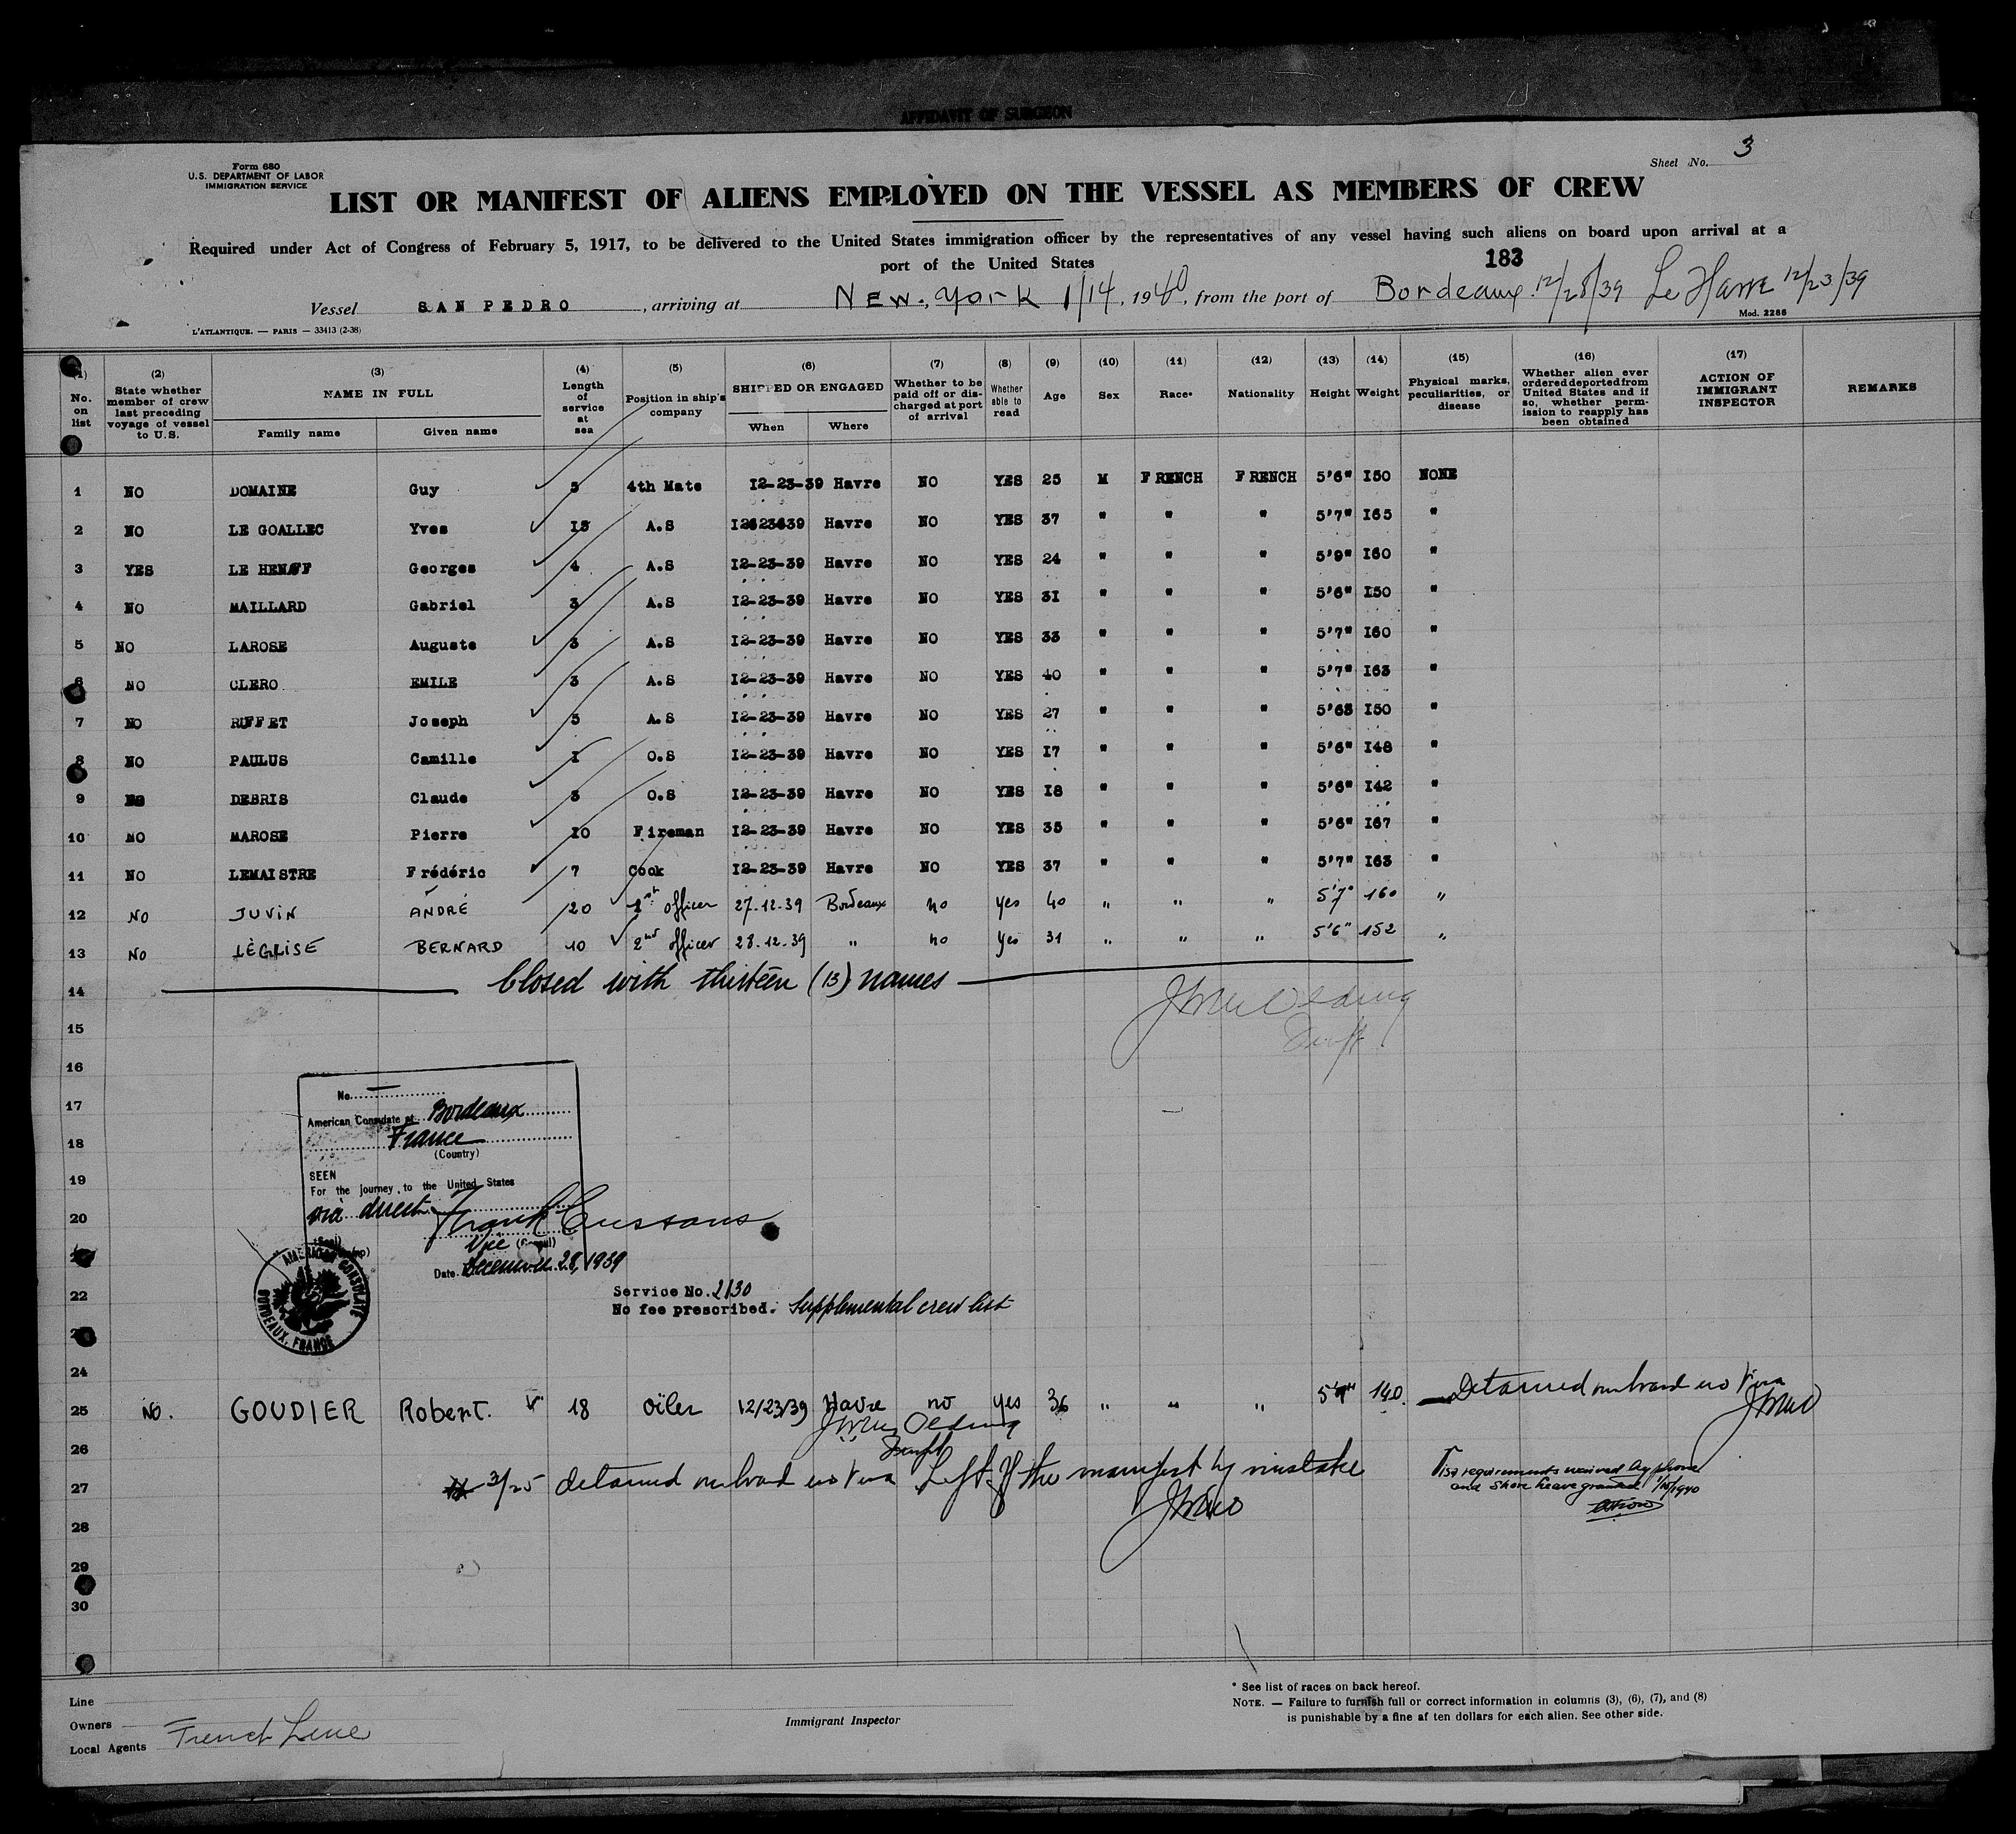 AFFIDAVIT OF SURGEON
Form 680
U.S. DEPARTMENT OF LABOR
IMMIGRATION SERVICE
Sheet No. 3
LIST OR MANIFEST OF ALIENS EMPLOYED ON THE VESSEL AS MEMBERS OF CREW
Required under Act of Congress of February 5, 1917, to be delivered to the United States immigration officer by the representatives of any vessel having such aliens on board upon arrival at a
port of the United States
183
Vessel SAN PEDRO, arriving at New. York 1/14, 1940, from the port of Bordeaux 12/28/39 Le Havre 12/23/39
L'ATLANTIQUE. — PARIS — 33413 (2-38)
Mod. 2286
(1) No. on list (2) State whether member of crew last preceding voyage of vessel to U.S. (3) NAME IN FULL Family name Given name (4) Length of service at sea (5) Position in ship's company (6) SHIPPED OR ENGAGED When Where (7) Whether to be paid off or discharged at port of arrival (8) Whether able to read (9) Age (10) Sex (11) Race* (12) Nationality (13) Height (14) Weight (15) Physical marks, peculiarities, or disease (16) Whether alien ever ordered deported from United States and if so, whether permission to reapply has been obtained (17) ACTION OF IMMIGRANT INSPECTOR REMARKS
1 NO DOMAINE Guy 5 4th Mate I2-23-39 Havre NO YES 25 M FRENCH FRENCH 5'6" I50 NONE
2 NO LE GOALLEC Yves I5 A.S I2623639 Havre NO YES 37 " " " 5'7" I65 "
3 YES LE HENAFF Georges 4 A.S I2-23-39 Havre NO YES 24 " " " 5'9" I60 "
4 NO MAILLARD Gabriel 3 A.S I2-23-39 Havre NO YES 3I " " " 5'6" I50 "
5 NO LAROSE Auguste 3 A.S I2-23-39 Havre NO YES 33 " " " 5'7" I60 "
6 NO CLERO EMILE 3 A.S I2-23-39 Havre NO YES 40 " " " 5'7" I63 "
7 NO RIFFET Joseph 5 A.S I2-23-39 Havre NO YES 27 " " " 5'6 I50 "
8 NO PAULUS Camille I O.S I2-23-39 Havre NO YES I7 " " " 5'6" I48 "
9 NO DEBRIS Claude 3 O.S I2-23-39 Havre NO YES I8 " " " 5'6" I42 "
10 NO MAROSE Pierre I0 Fireman I2-23-39 Havre NO YES 35 " " " 5'6" I67 "
11 NO LEMAISTRE Frédéric 7 Cook I2-23-39 Havre NO YES 37 " " " 5'7" I63 "
12 NO JUVIN ANDRÉ 20 officer 27.12.39 Bordeaux no yes 40 " " " 5'7" 160 "
13 NO LÉGLISE BERNARD 10 2nd officer 28.12.39 " no yes 31 " " " 5'6" 152 "
14 Closed with thirteen (13) names
15
16
17
18
19
20
22
24
No.
American Consulate at Bordeaux
France
(Country)
SEEN
For the journey to the United States
via direct
Vice (Consul)
Date December 28, 1939
AMERICAN CONSULATE
BORDEAUX, FRANCE
Service No. 2130
No fee prescribed. Supplemental crew list
25 NO. GOUDIER Robert. 18 oiler 12/23/39 Havre no yes 36 " " " 140. Detained on board no Visa
26
27 3/25 detained on board no Visa Left off the manifest by mistake
Visa requirements waived by phone
and Shore leave granted 1/15/1940
28
29
30
Line
Owners
Local Agents French Line
Immigrant Inspector
* See list of races on back hereof.
NOTE. — Failure to furnish full or correct information in columns (3), (6), (7), and (8)
is punishable by a fine af ten dollars for each alien. See other side.